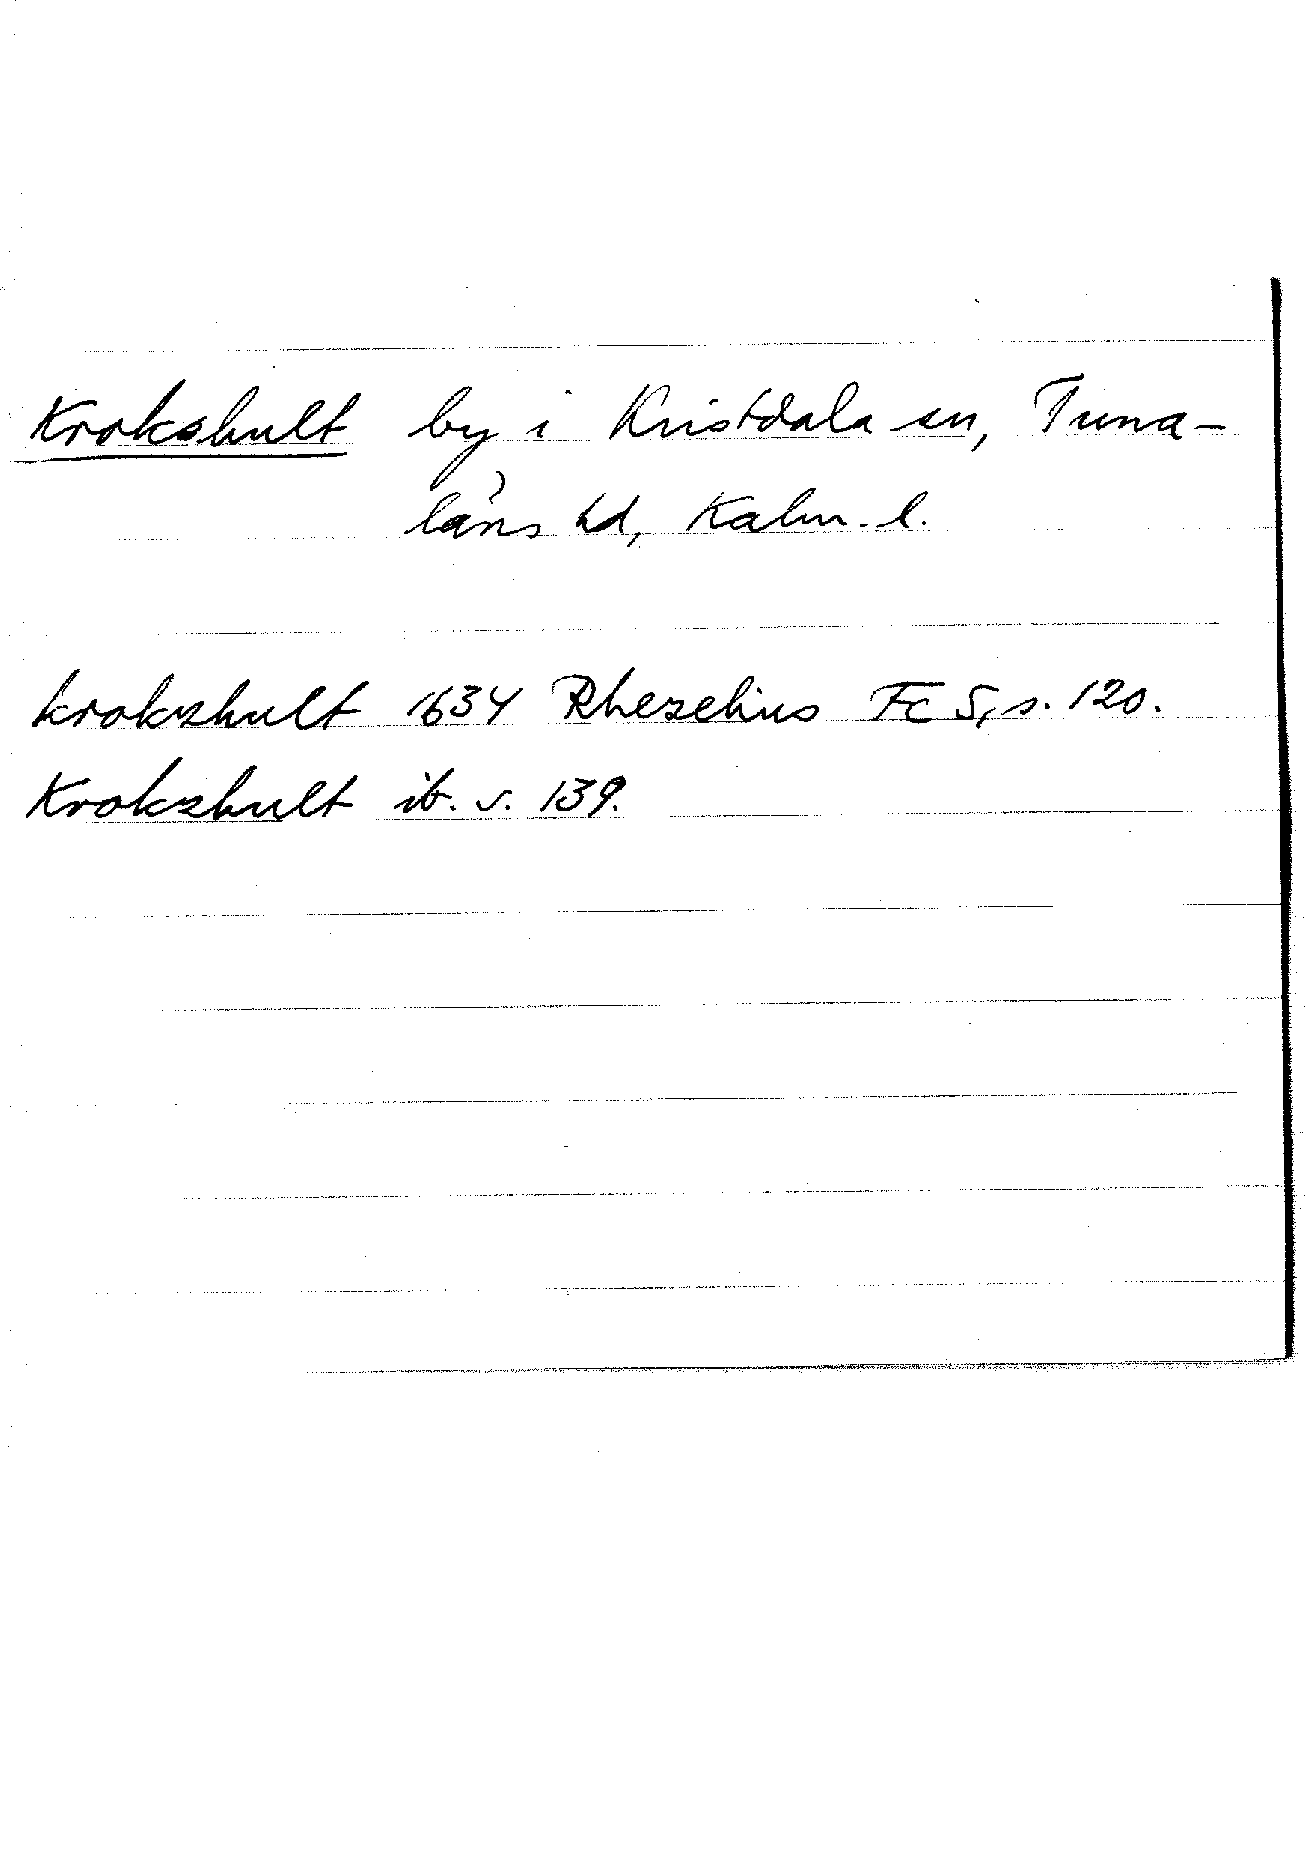 Krokshult by i Kristdala sn, Tuna-
läns hd, Kalm. l.
krokzhult 1634 Rhezelius Fc 5, s. 120.
Krokzhult ib. s. 139.